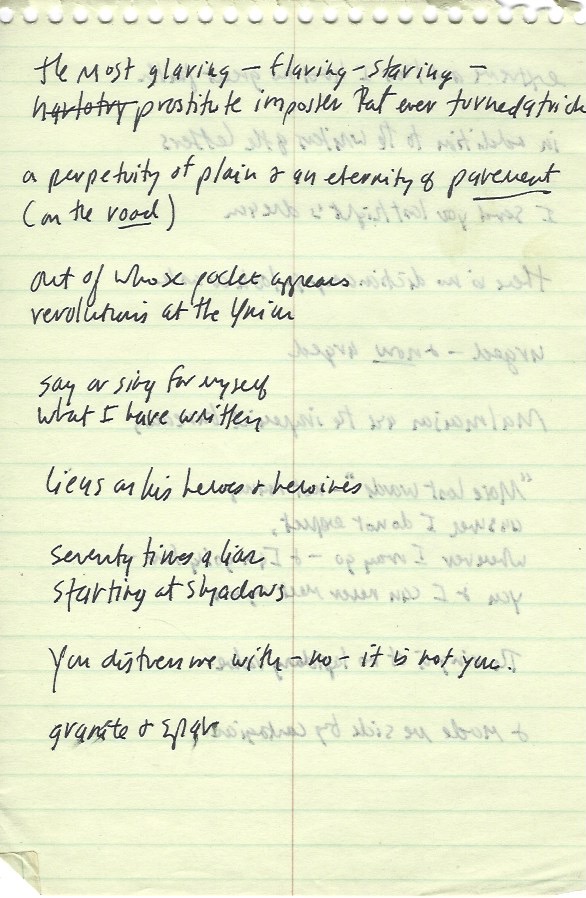 the most glaring – flaring – staring –
prostitute imposter that ever turned a trick
a perpetuity of plain & an eternity of pavement
(on the road)
out of whose pocket appears
revolutions at the
say or sing for myself
what I have written
liens on his heroes & heroines
seventy times a liar
starting at shadows
You distress me with – no – it is not you.
granite & spar